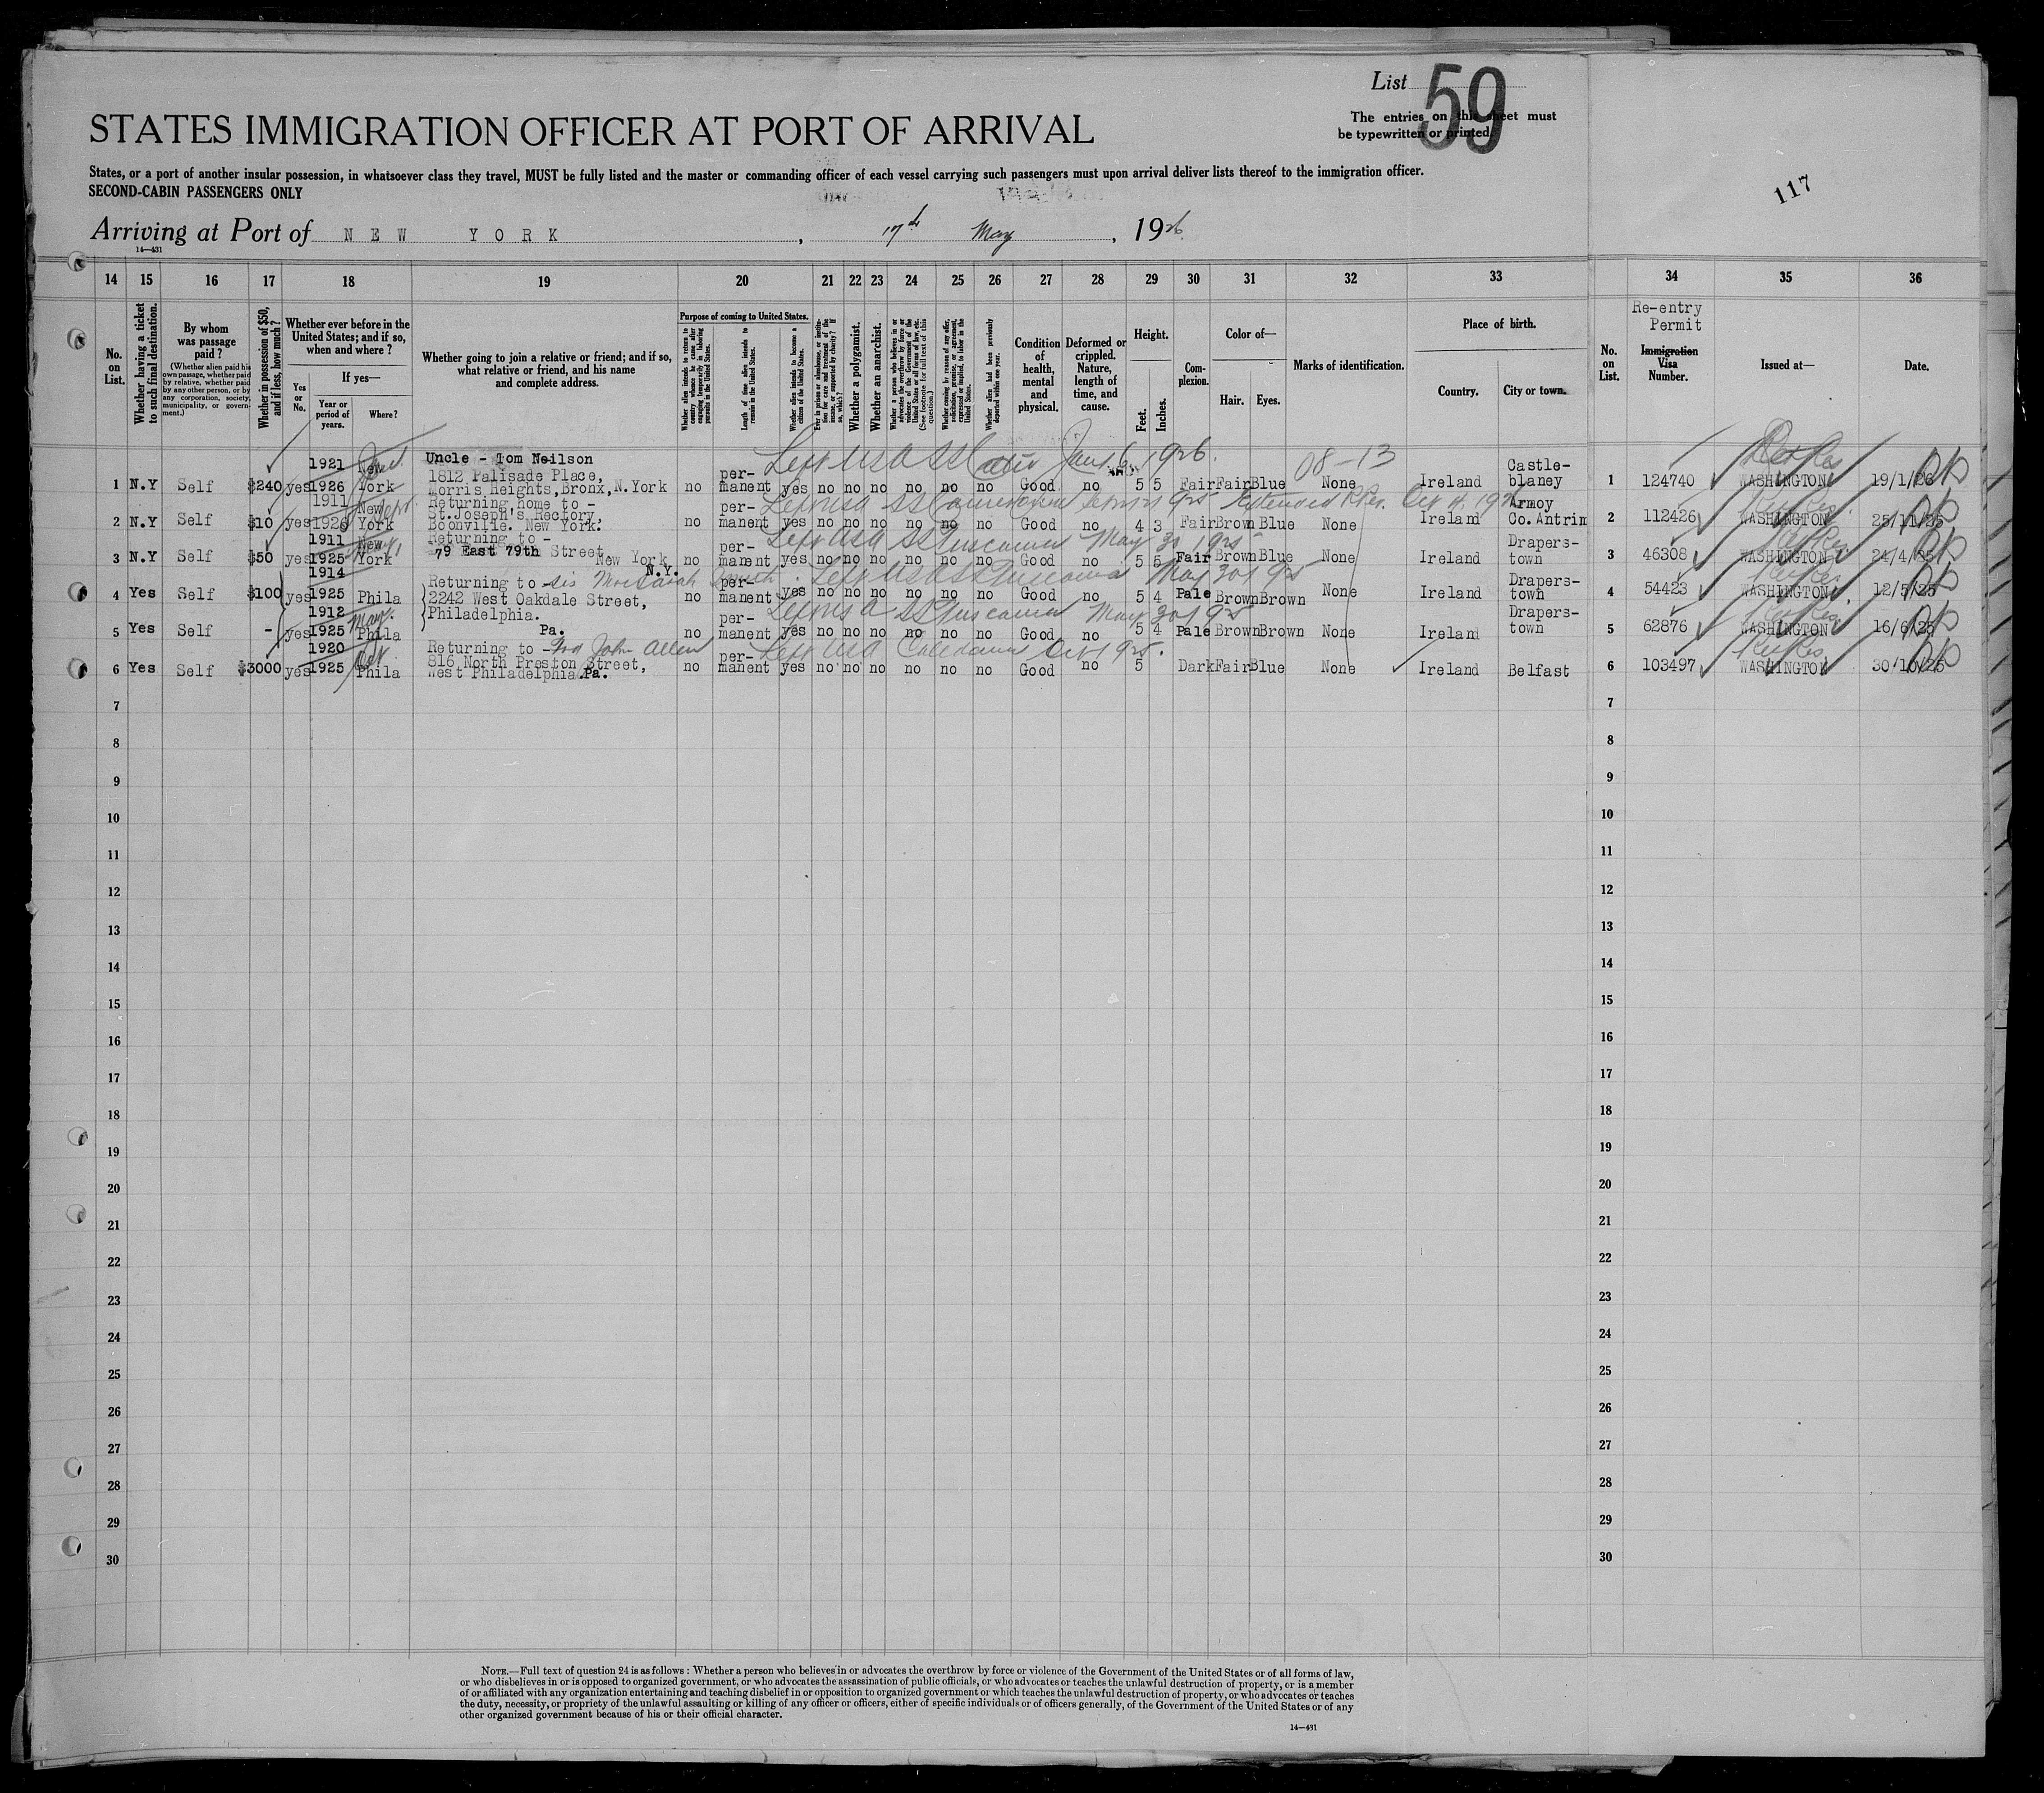 List 59
The entries on this sheet must
be typewritten or printed.
STATES IMMIGRATION OFFICER AT PORT OF ARRIVAL
States, or a port of another insular possession, in whatsoever class they travel, MUST be fully listed and the master or commanding officer of each vessel carrying such passengers must upon arrival deliver lists thereof to the immigration officer.
SECOND-CABIN PASSENGERS ONLY
117
Arriving at Port of NEW YORK, 17th May, 1926
14—431
14 15 16 17 18 19 20 21 22 23 24 25 26 27 28 29 30 31 32 33 34 35 36
No. on List.
Whether having a ticket to such final destination.
By whom was passage paid?
(Whether alien paid his own passage, whether paid by relative, whether paid by any other person, or by any corporation, society, municipality, or government.)
Whether in possession of $50, and if less, how much?
Whether ever before in the United States; and if so, when and where?
Yes or No.
If yes—
Year or period of years.
Where?
Whether going to join a relative or friend; and if so, what relative or friend, and his name and complete address.
Purpose of coming to United States.
Whether alien intends to return to country whence he came after engaging temporarily in laboring pursuits in the United States.
Length of time alien intends to remain in the United States.
Whether alien intends to become a citizen of the United States.
Ever in prison or almshouse, or institution for care and treatment of the insane, or supported by charity? If so, which?
Whether a polygamist.
Whether an anarchist.
Whether a person who believes in or advocates the overthrow by force or violence of the Government of the United States or all forms of law, etc. (See footnote for full text of this question.)
Whether coming by reason of any offer, solicitation, promise, or agreement, expressed or implied, to labor in the United States.
Whether alien had been previously deported within one year.
Condition of health, mental and physical.
Deformed or crippled. Nature, length of time, and cause.
Height.
Feet. Inches.
Complexion.
Color of—
Hair. Eyes.
Marks of identification.
Place of birth.
Country. City or town.
No. on List.
Re-entry Permit
Immigration Visa Number.
Issued at—
Date.
1 N.Y Self $240 yes 1921 1926 New York Uncle - Tom Neilson 1812 Palisade Place, Morris heights, Bronx, N.York no per-manent yes no no no no no no Good no 5 5 Fair Fair Blue None Ireland Castle-blaney 1 124740 WASHINGTON 19/1/26
Left USA SS Jan 6 1926. 08-13
2 N.Y Self $10 yes 1911 1926 New York Sept. Returning home to - St.Joseph's Rectory. Boonville. New York. no per-manent yes no no no no no no Good no 4 3 Fair Brown Blue None Ireland Armoy Co.Antrim 2 112426 WASHINGTON 25/11/25
Left USA SS Extended
3 N.Y Self $50 yes 1911 1925 New York Returning to - 79 East 79th Street, New York N.Y. no per-manent yes no no no no no no Good no 5 5 Fair Brown Blue None Ireland Drapers-town 3 46308 WASHINGTON 24/4/25
Left USA SS Tuscania May 30 1925
4 Yes Self $100 yes 1914 1925 Phila Returning to - sis Mrs Sarah 2242 West Oakdale Street, Philadelphia. no per-manent yes no no no no no no Good no 5 4 Pale Brown Brown None Ireland Drapers-town 4 54423 WASHINGTON 12/5/25
Left USA SS Tuscania May 30 1925
5 Yes Self - yes 1912 1925 May Phila Pa. no per-manent yes no no no no no no Good no 5 4 Pale Brown Brown None Ireland Drapers-town 5 62876 WASHINGTON 16/6/25
Left USA SS Tuscania May 30 1925
6 Yes Self $3000 yes 1920 1925 Phila Returning to - John Allen 816 North Preston Street, West Philadelphia Pa. no per-manent yes no no no no no no Good no 5 Dark Fair Blue None Ireland Belfast 6 103497 WASHINGTON 30/10/25
Left USA Caledonia Oct 1925.
7 7
8 8
9 9
10 10
11 11
12 12
13 13
14 14
15 15
16 16
17 17
18 18
19 19
20 20
21 21
22 22
23 23
24 24
25 25
26 26
27 27
28 28
29 29
30 30
NOTE.—Full text of question 24 is as follows: Whether a person who believes in or advocates the overthrow by force or violence of the Government of the United States or of all forms of law,
or who disbelieves in or is opposed to organized government, or who advocates the assassination of public officials, or who advocates or teaches the unlawful destruction of property, or is a member
of or affiliated with any organization entertaining and teaching disbelief in or opposition to organized government or which teaches the unlawful destruction of property, or who advocates or teaches
the duty, necessity, or propriety of the unlawful assaulting or killing of any officer or officers, either of specific individuals or of officers generally, of the Government of the United States or of any
other organized government because of his or their official character.
14—431